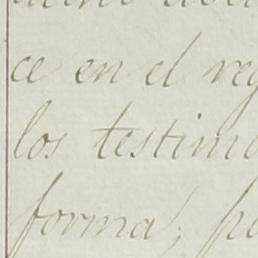 ce en el reg
los testimo
forma, pe